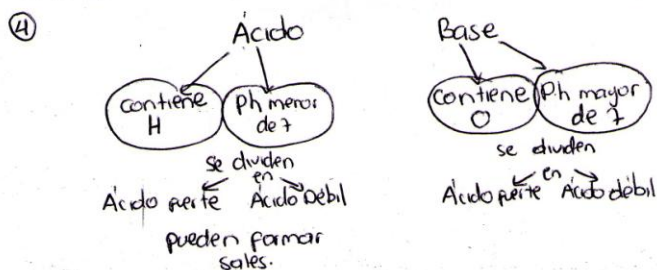 4
Ácido
contiene H
Ph menor de 7
se dividen
en
Ácido fuerte Ácido Débil
pueden formar
sales.
Base
contiene O
Ph mayor de 7
se dividen
en
Ácido fuerte Ácido débil